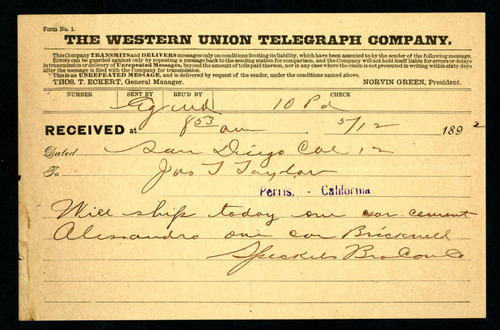 Form No. 1.
THE WESTERN UNION TELEGRAPH COMPANY.
This Company TRANSMITS and DELIVERS messages only on conditions limiting its liability, which have been assented to by the sender of the following message.
Errors can be guarded against only by repeating a message back to the sending station for comparison, and the Company will not hold itself liable for errors or delays
in transmission or delivery of Unrepeated Messages, beyond the amount of tolls paid thereon, nor in any case where the claim is not presented in writing within sixty days
after the message is filed with the Company for transmission.
This is an UNREPEATED MESSAGE, and is delivered by request of the sender, under the conditions named above.
THOS. T. ECKERT, General Manager. NORVIN GREEN, President.
NUMBER SENT BY REC'D BY CHECK
10 Pd
RECEIVED at 853 am 5/12 1892
Dated San Diego Cal 12
To Jos T Taylor
Perris. - California
Will ship today one car cement
Alessandro one car Bricknell
Speckels Bro Com Co